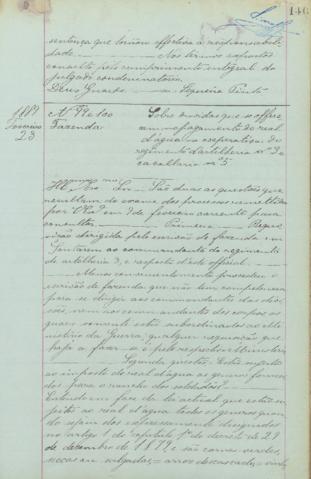 146
sentença que tornou effectiva a responsabili-
dade — Nos termos expostos
consulto pelo cumprimento integral do
julgado condemnatorio
Deus Guarde — a. Sequeira Pinto
1889
Fevereiro
23
Nº 99 e 100
Fazenda
Sobre duvidas que se offere-
cem no pagamento do real
d'agua na cooperativa do
regimento d'artilheria nº 3 e
cavallaria nº 5
Illmo Exmo Snr — São duas as questões que
resultam do exame dos processos remettidos
por VExa em 9 de fevereiro corrente para
consultar. — Primeira —
dirigida pelo escrivão de fazenda em
Santarem ao commandante do regimento
de artilharia 3, e resposta d'este official. —
Menos convenientemente procedeu o
escrivão de fazenda que não tem competencia
para se dirigir aos commandantes das divi-
sões, nem aos commandantes dos corpos os
quaes somente estão subordinados ao Mi-
nisterio da Guerra; qualquer requisição que
haja a fazer-se é pelo respectivo Ministerio
Segunda questão. Estão sujeitos
ao imposto do real d'agua os generos forneci-
dos para o rancho dos soldados? —
Entendo em face da lei actual que estão su-
jeitos ao real d'agua todos os generos quan-
do sejam dos expressamente designados
no artigo 1 do capitulo 1º do decreto de 29
de dezembro de 1879 e são carnes verdes,
seccas ou salgadas, = arroz descascado, = vinho,